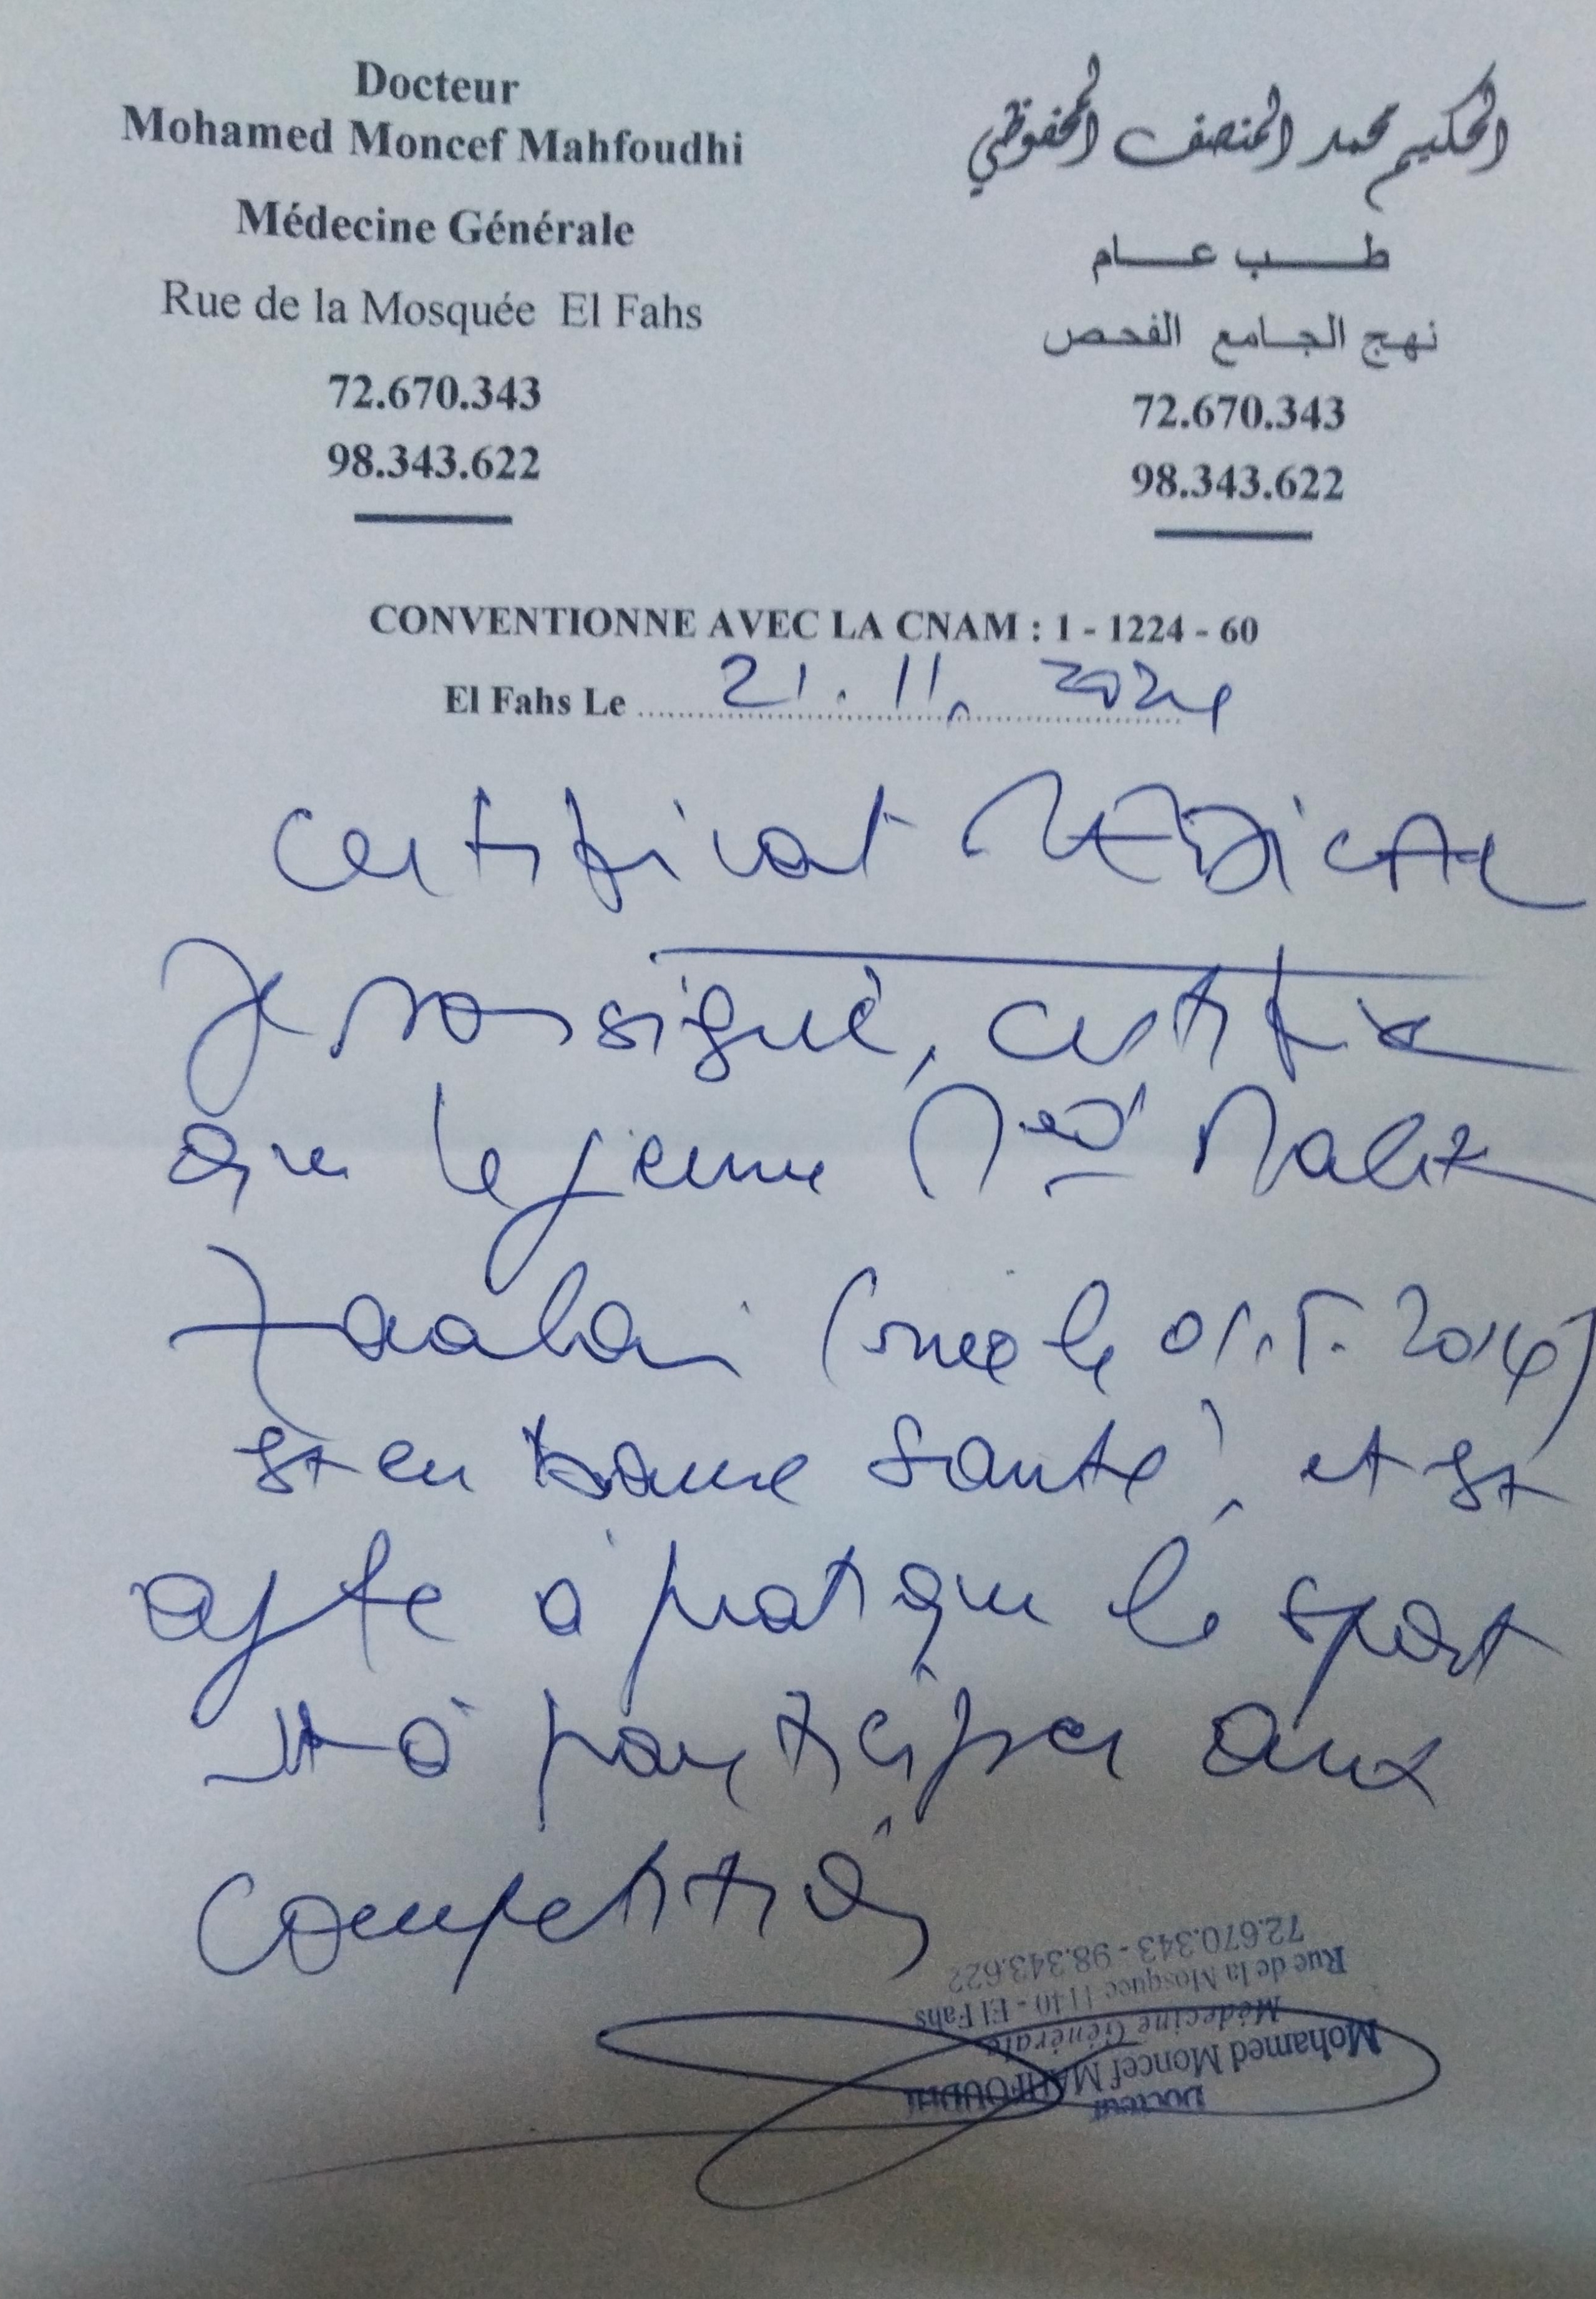 Docteur
Mohamed Moncef Mahfoudhi
Médecine Générale
Rue de la Mosquée El Fahs
72.670.343
98.343.622
الحكيم محمد المنصف المحفوظي
طب عام
نهج الجامع الفحص
72.670.343
98.343.622
CONVENTIONNE AVEC LA CNAM : 1 - 1224 - 60
El Fahs Le 21.11.2024
Certificat MEDICAL
Je soussigné, certifie
que le jeune Med Malek
(née le 01.5.2014)
est en bonne santé, et est
apte à pratiquer le sport
et à participer aux
competition
72.670.343 - 98.343.622
Rue de la Mosquée 1140 - El Fahs
Médecine Générale
Mohamed Moncef MAHFOUDHI
Docteur